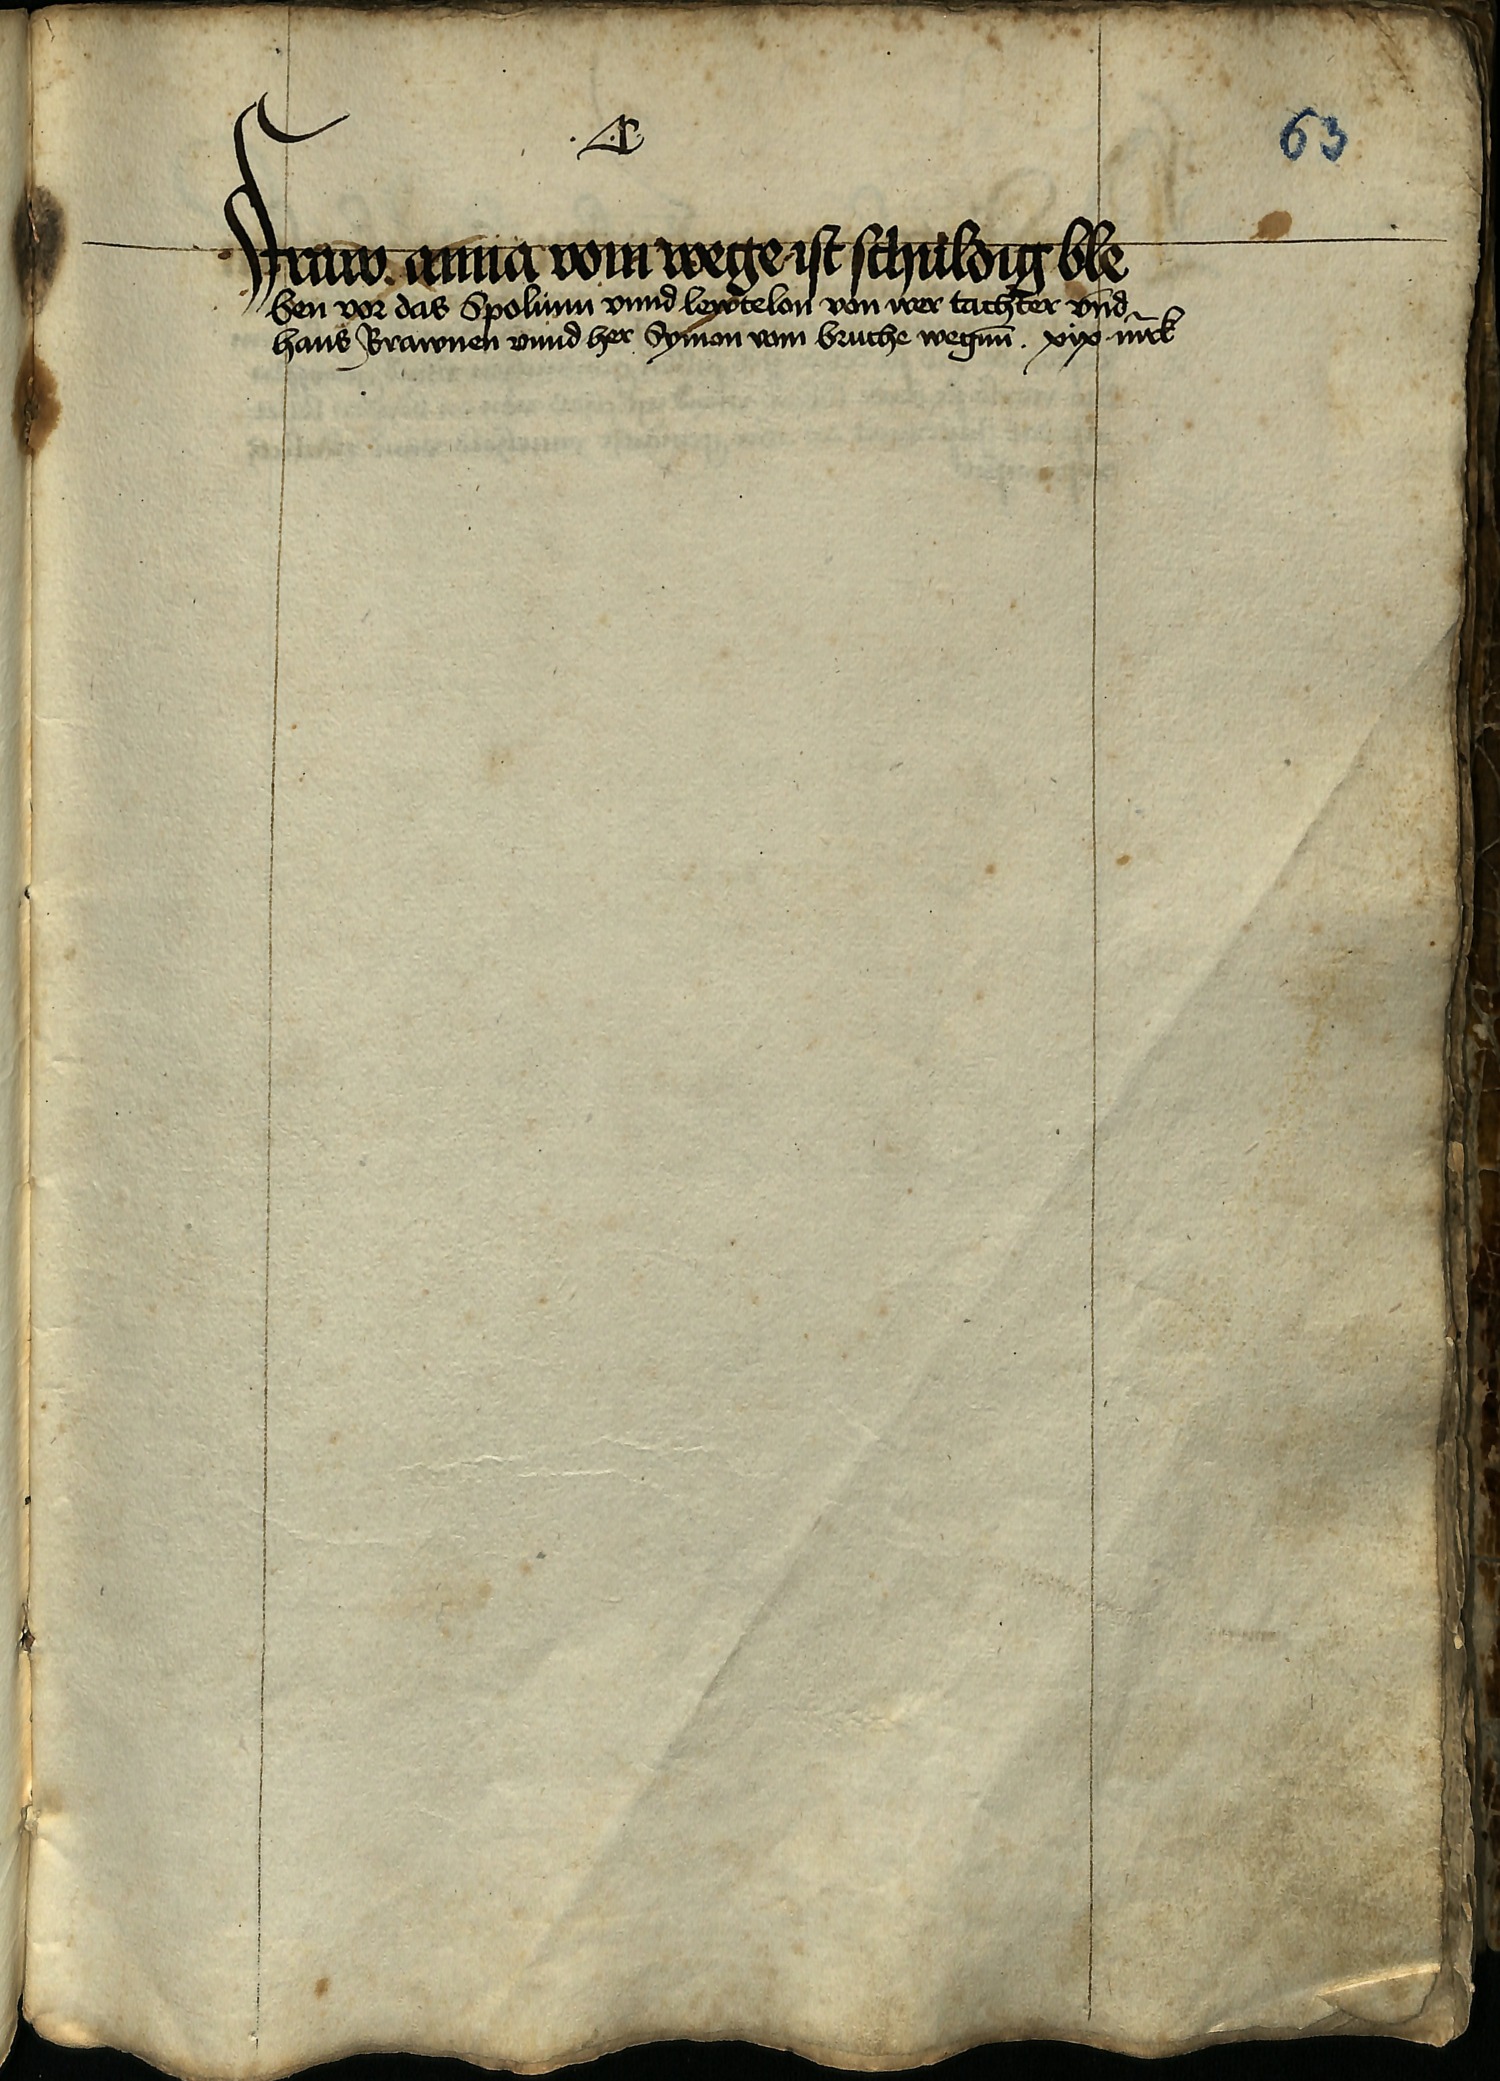 63
Fraw anna vom wege ist schuldig ble
ben vor das Spolium vnnd lewtelon von irer tachter vnd
hans Brawnen vnnd her Symon vom bruche wegnn̄. xix m̄rck